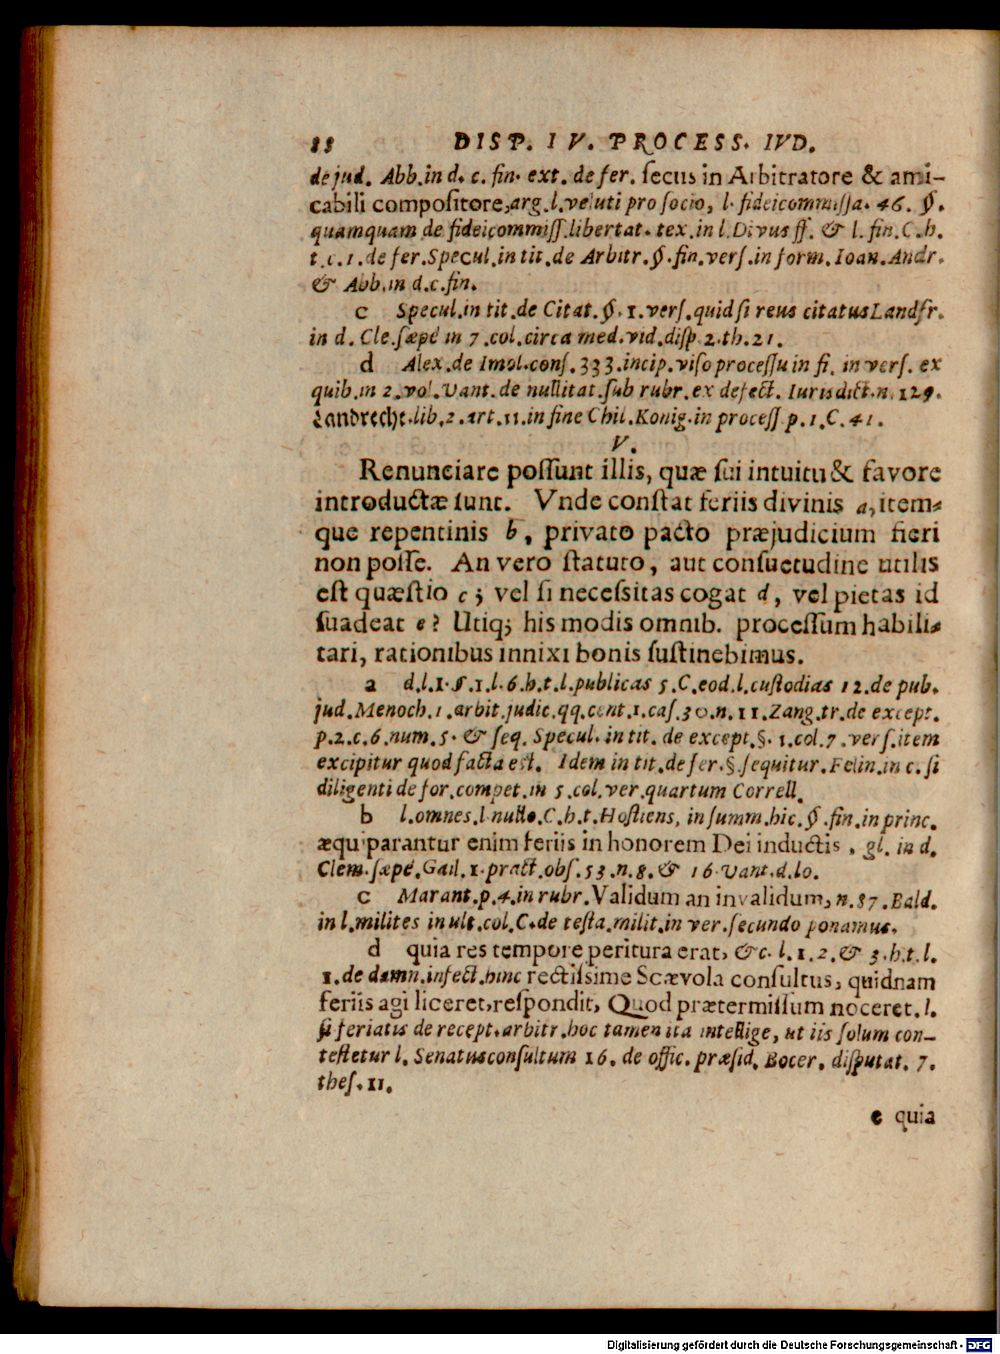 88 DISP. IV. PROCESS. IVD.
de jud. Abb. in d. c. fin. ext. de fer. ſecus in Arbitratore & ami-
cabili compoſitore, arg. l. veluti pro ſocio, l. fideicommiſſa. 46. §.
quamquam de fideicommiſſ. libertat. tex. in l. Divus ff. & l. fin. C. h.
t. c. 1. de fer. Specul. in tit. de Arbitr. §. fin. verſ. in form. Ioan. Andr.
& Abb. in d. c. fin.
c Specul. in tit. de Citat. §. 1. verſ. quid ſi reus citatus Landfr.
in d. Cle. ſæpe in 7. col. circa med. vid. diſp. 2. th. 21.
d Alex. de Imol. conſ. 333. incip. viſo proceſſu in fi. in verſ. ex
quib. in 2. vol. Vant. de nullitat. ſub rubr. ex defect. Iurisdict. n. 129.
Landrecht. lib. 2. art. 11. in fine Chil. Konig. in proceſſ p. 1. C. 41.
V.
Renunciare poſſunt illis, quæ ſui intuitu & favore
introductæ ſunt. Vnde conſtat feriis divinis a, item-
que repentinis b, privato pacto præjudicium fieri
non poſſe. An vero ſtatuto, aut conſuetudine utilis
eſt quæſtio c; vel ſi neceſsitas cogat d, vel pietas id
ſuadeat e? Utiq; his modis omnib. proceſſum habili-
tari, rationibus innixi bonis ſuſtinebimus.
a d. l. 1. §. 1. l. 6. h. t. l. publicas 5. C. eod. l. cuſtodias 12. de pub.
jud. Menoch. 1. arbit. judic. qq. cent. 1. caſ. 30. n. 11. Zang. tr. de except.
p. 2. c. 6. num. 5. & ſeq. Specul. in tit. de except. §. 1. col. 7. verſ. item
excipitur quod facta eſt. Idem in tit. de fer. §. ſequitur. Felin. in c. ſi
diligenti de for. compet. in 5. col. ver. quartum Correll.
b l. omnes. l. nullo. C. h. t. Hoſtiens, in ſumm. hic. §. fin. in princ.
æquiparantur enim feriis in honorem Dei inductis, gl. in d.
Clem. ſæpe. Gail. 1. pract. obſ. 53. n. 8. & 16. Vant. d. lo.
c Marant. p. 4. in rubr. Validum an invalidum, n. 87. Bald.
in l. milites in ult. col. C. de teſta. milit. in ver. ſecundo ponamus.
d quia res tempore peritura erat, &c. l. 1. 2. & 3. h. t. l.
1. de damn. infect. hinc rectiſsime Scævola conſultus, quidnam
feriis agi liceret, reſpondit, Quod prætermiſſum noceret. l.
ſi feriatis de recept. arbitr. hoc tamen ita intellige, ut iis ſolum con-
teſtetur l. Senatusconſultum 16. de offic. præſid. Bocer. diſputat. 7.
theſ. 11.
e quia
Digitalisierung gefördert durch die Deutsche Forschungsgemeinschaft - DFG